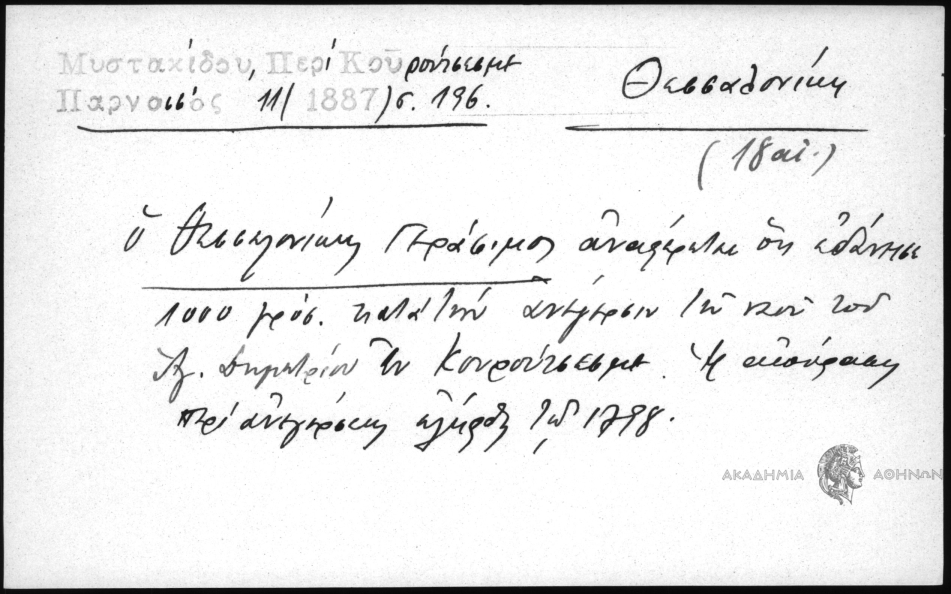 Μυστακίδου, Περί Κουρούτσεσμε
Παρνασσός 11 (1887) σ. 196.
Θεσσαλονίκη
(18 αἰ.)
ὁ Θεσσαλονίκης Γεράσιμος ἀναφέρεται ὅτι ἐδάνεισε
1000 γρόσ. κατά τήν ἀνέγερσιν τοῦ ναοῦ τοῦ
Ἁγ. Δημητρίου ἐν Κουρούτσεσμε. Ἡ ἀπόφασις
περί ἀνεγέρσεως ἐλήφθη τῷ 1798.
ΑΚΑΔΗΜΙΑ ΑΘΗΝΩΝ